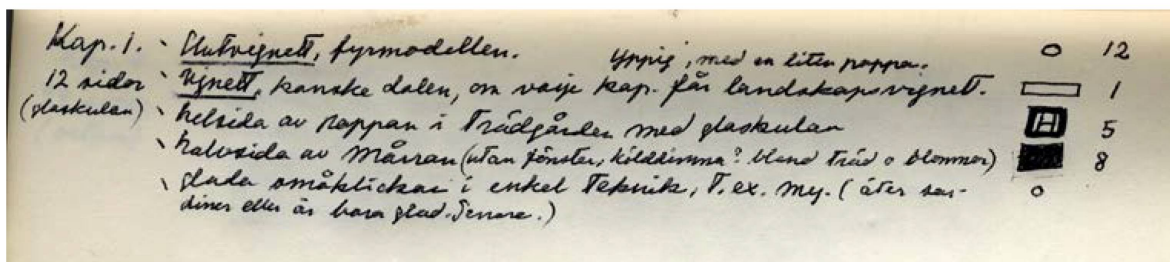 Kap. 1. Slutvignett, fyrmodellen. yppig, med en liten pappa. 12
12 sidor vignett, kanske dalen, om varje kap. får landskapsvignett. 1
(glaskulan) helsida av pappan i Trädgården med glaskulan H 5
halvsida av Mårran (utan fönster, kölddimma? bland träd o blommor) 8
glada småklickar i enkel Teknik, T.ex. My. (äter sar-
diner eller är bara glad. Senare.)